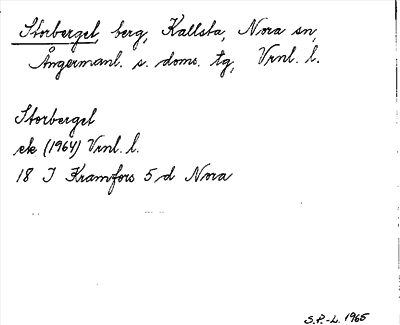 Storberget, berg, Kallsta, Nora sn,
Ångermanl. s. doms. tg, Vrnl. l.
Storberget
ek (1964) Vrnl. l.
18 I Kramfors 5 d Nora
S.P.-L. 1965